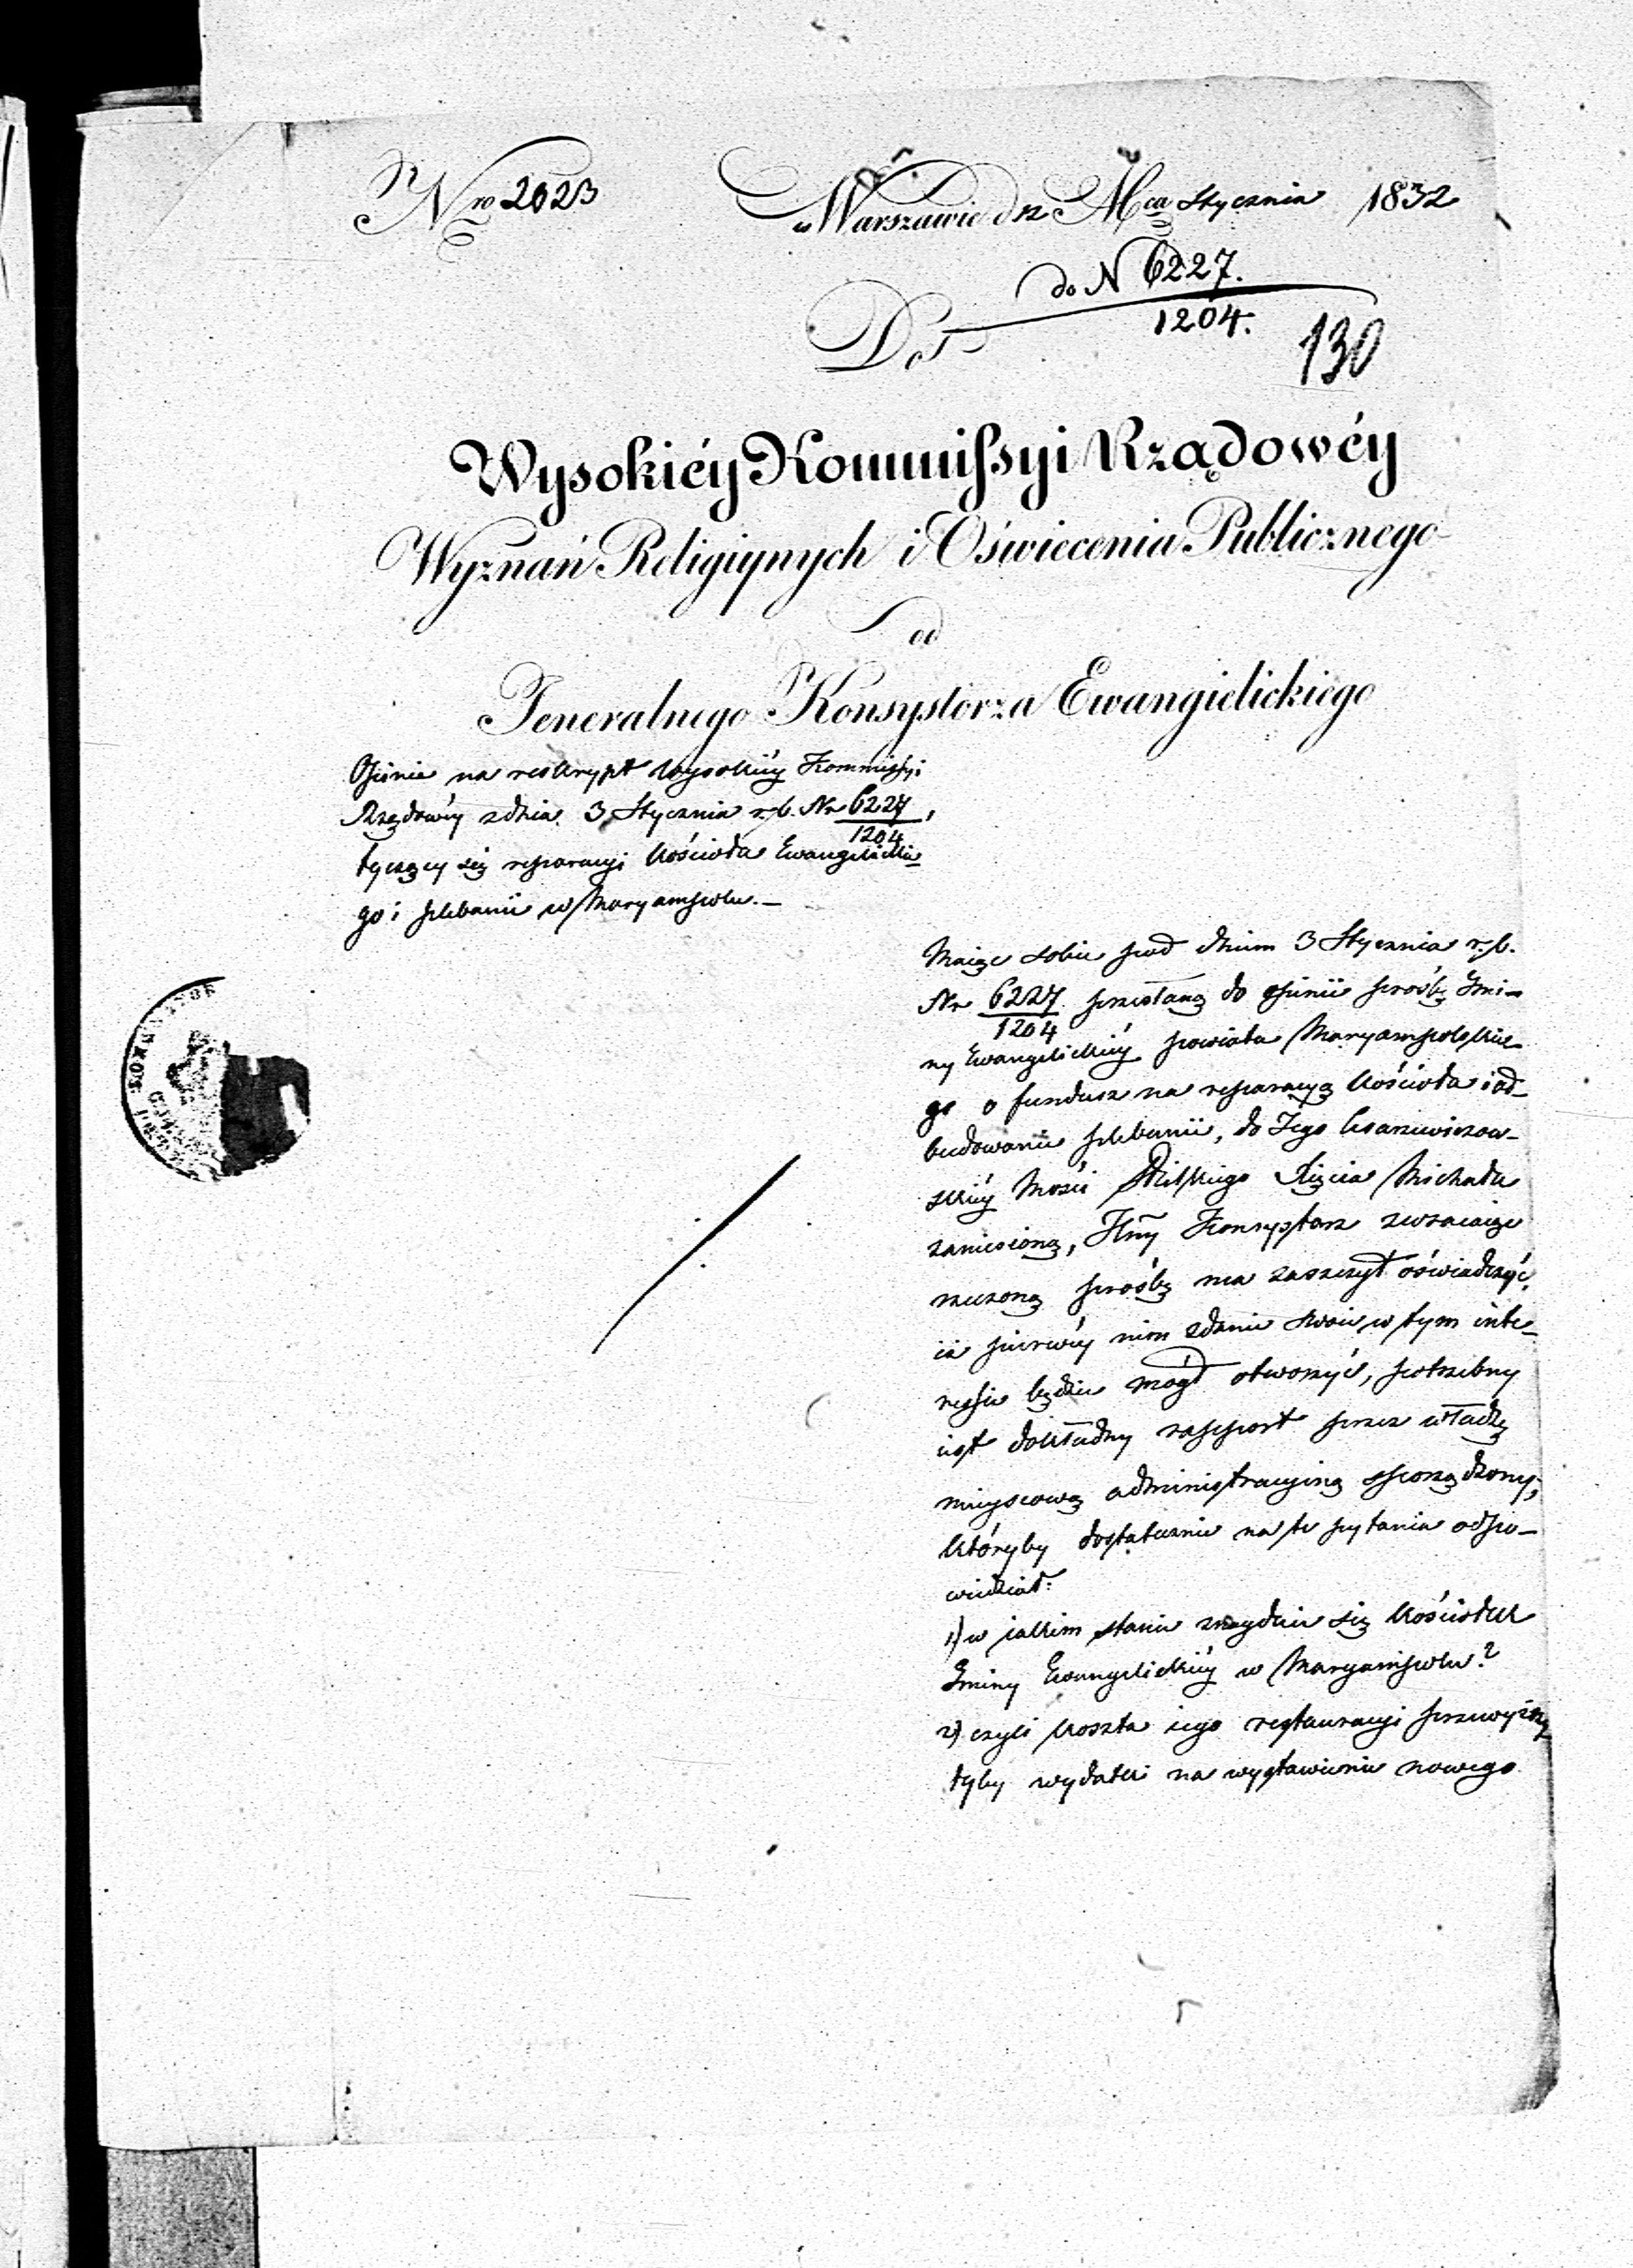 Nro 2023 w Warszawie d 12 Mca Stycznia 1832
do N 6227.
1204.
Do
130
Wysokiéy Kommissyi Rządowéy
Wyznań Religiynych i Oświecenia Publicznego
od
Jeneralnego Konsystorza Ewangielickiego
Opinia na reskrypt Wysokiéy Kommissyi
Rządowéy z dnia 3 Stycznia r.b. Nr 6227/1204,
tyczący się reparacyi kościoła Ewangelickie-
go i plebanii w Maryampolu.—
Maiąc sobie pod dniem 3 Stycznia r.b.
Nr 6227/1204 przesłaną do opinii prośbę Gmi-
ny Ewangelickiéy powiatu Maryampolskie-
go o fundusz na reparacyą kościoła i od-
budowanie plebanii, do Jego Cesarzewiczow-
skiéy Mości Wielkiego Xięcia Michała
zaniesioną, Konsystorz zwracaiąc
rzeczoną prośbę ma zaszczyt oświadczyć,
iż pierwéy nim zdanie swoie w tym inte-
ressie będzie mógł otworzyć, potrzebny
iest dokładny rapport przez władzę
mieyscową administracyiną sporządzony,
któryby dostatecznie na te pytania odpo-
wiedział:
1) w iakim stanie znayduie się kościołek
Gminy Ewangelickiéy w Maryampolu?
2) czyli koszta iego restauracyi przewyższa
łyby wydatki na wystawienie nowego